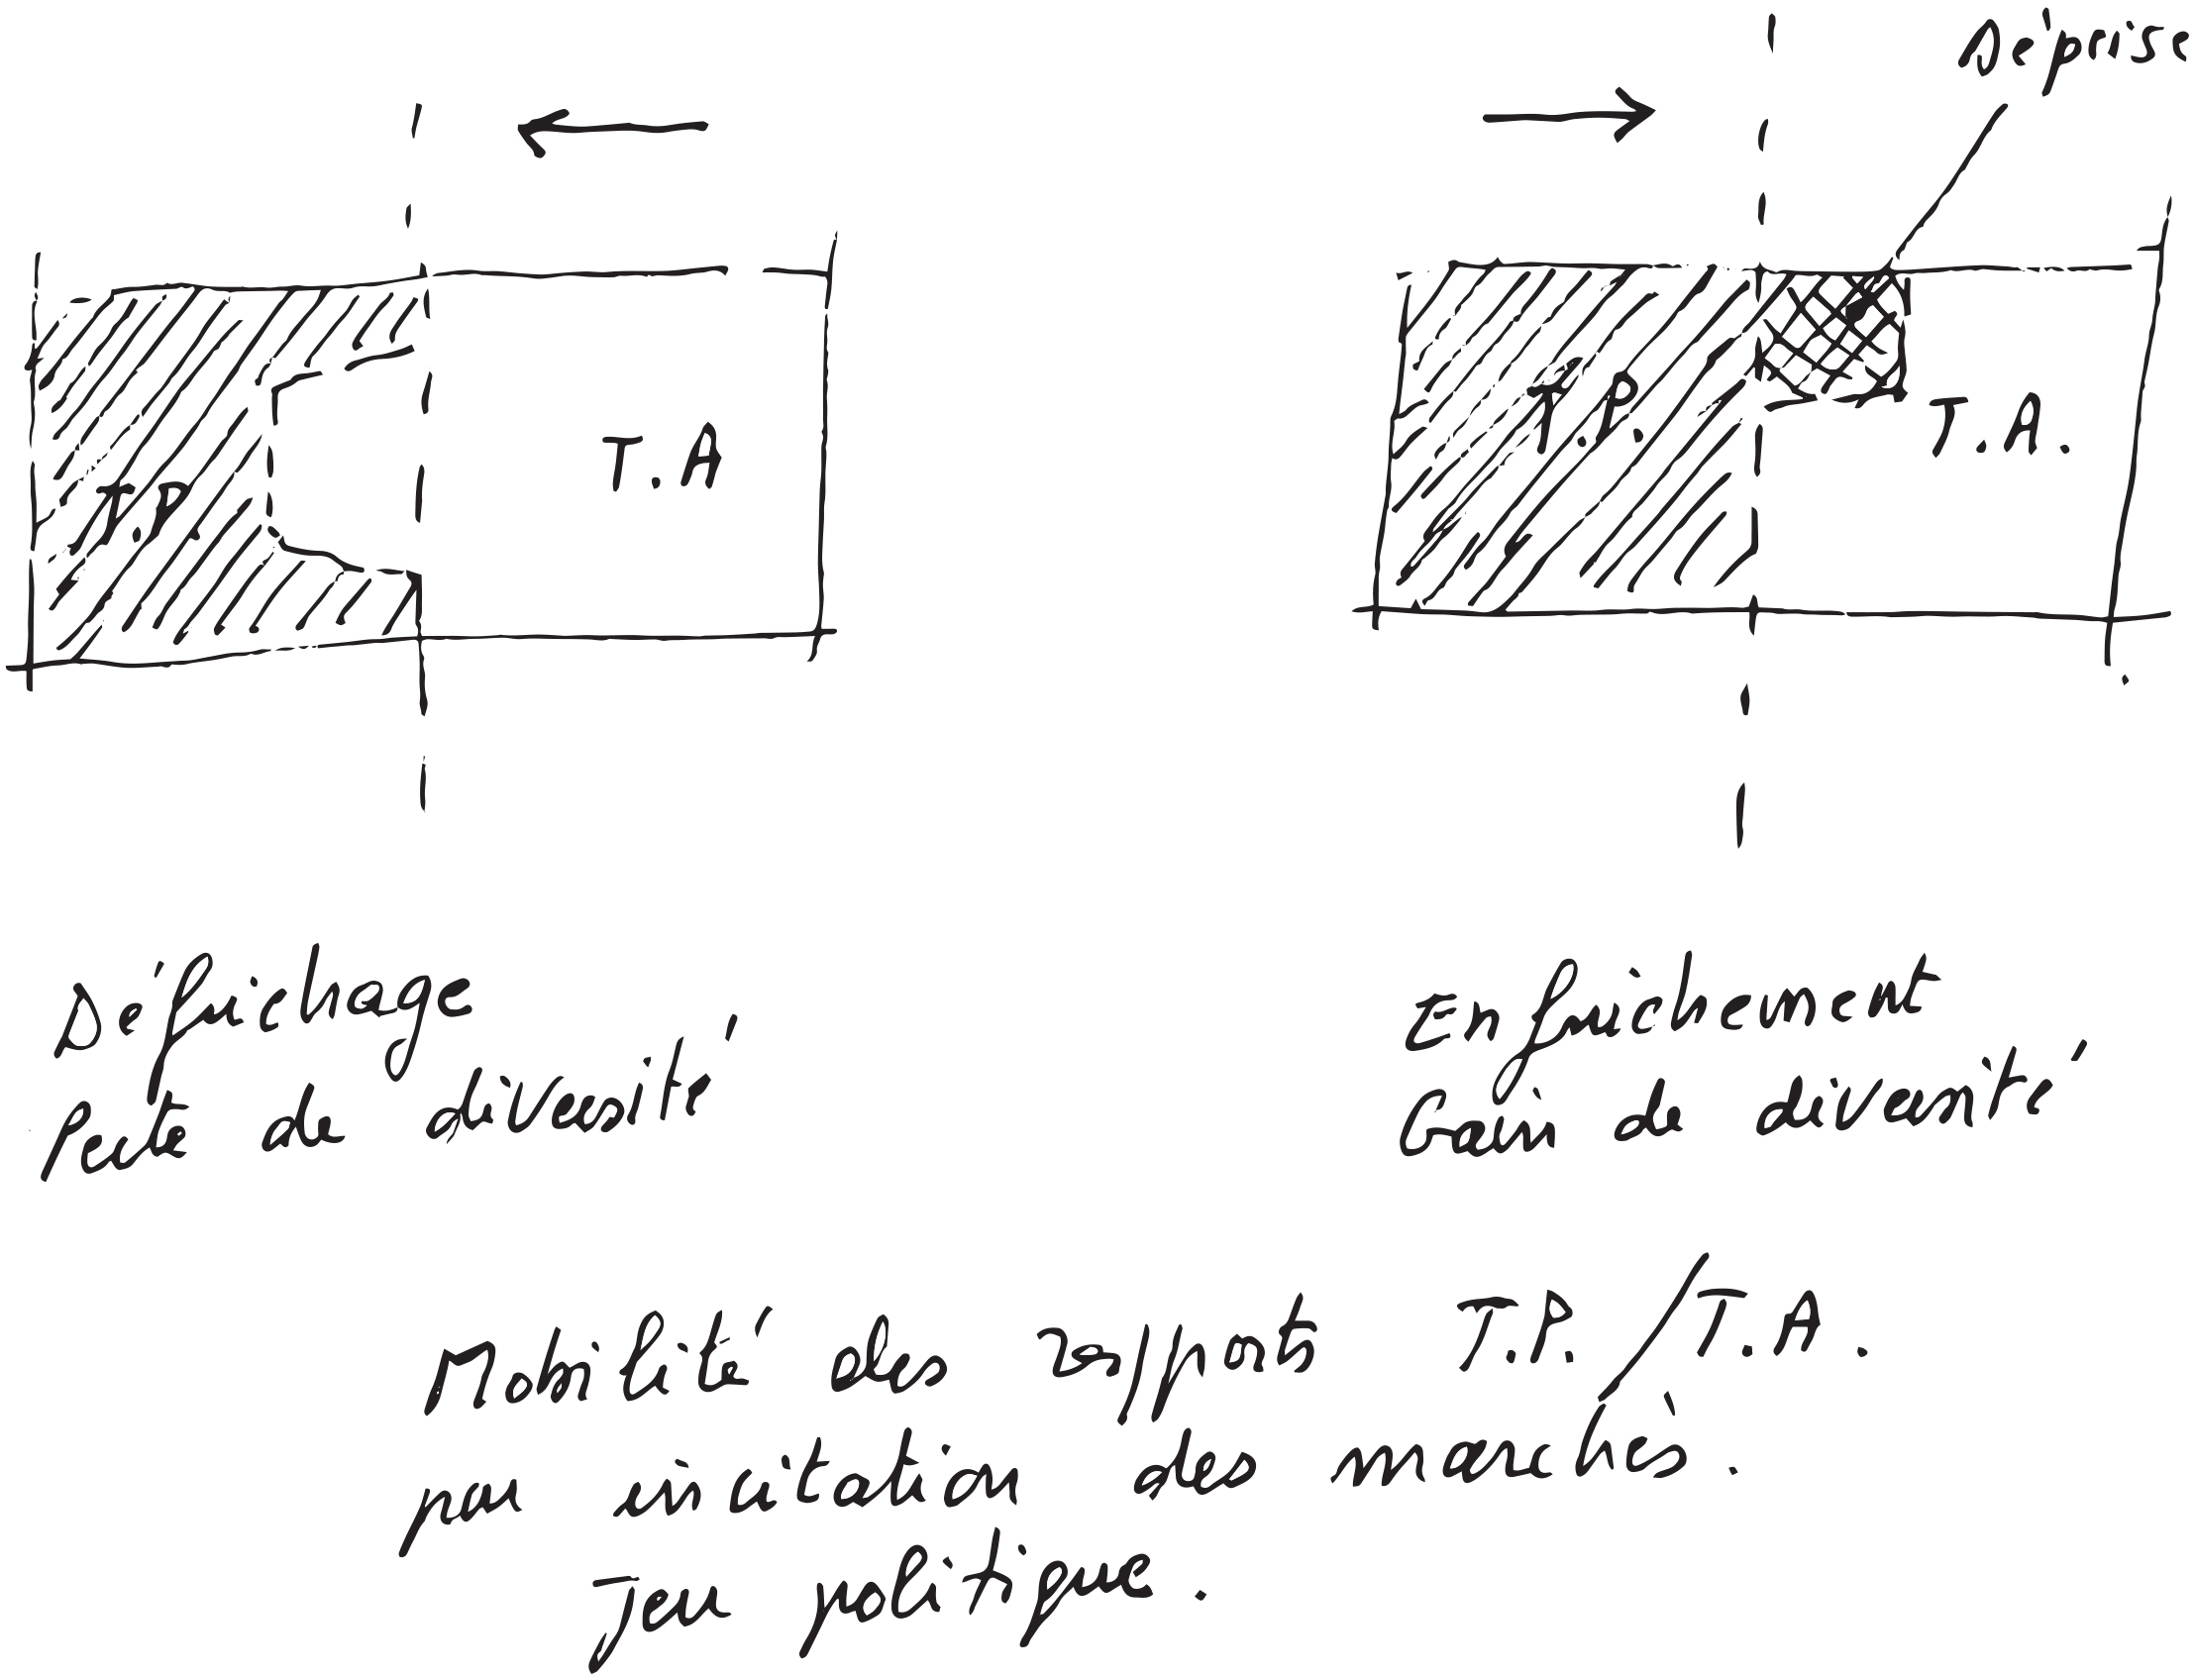 Déprise
T.A
T.P
T.P.
T.A.
Défrichage
Perte de diversité
Enfrichement
Gain de diversité
Mobilité des rapports T.P./T.A.
par incitation des marchés.
Jeu politique.